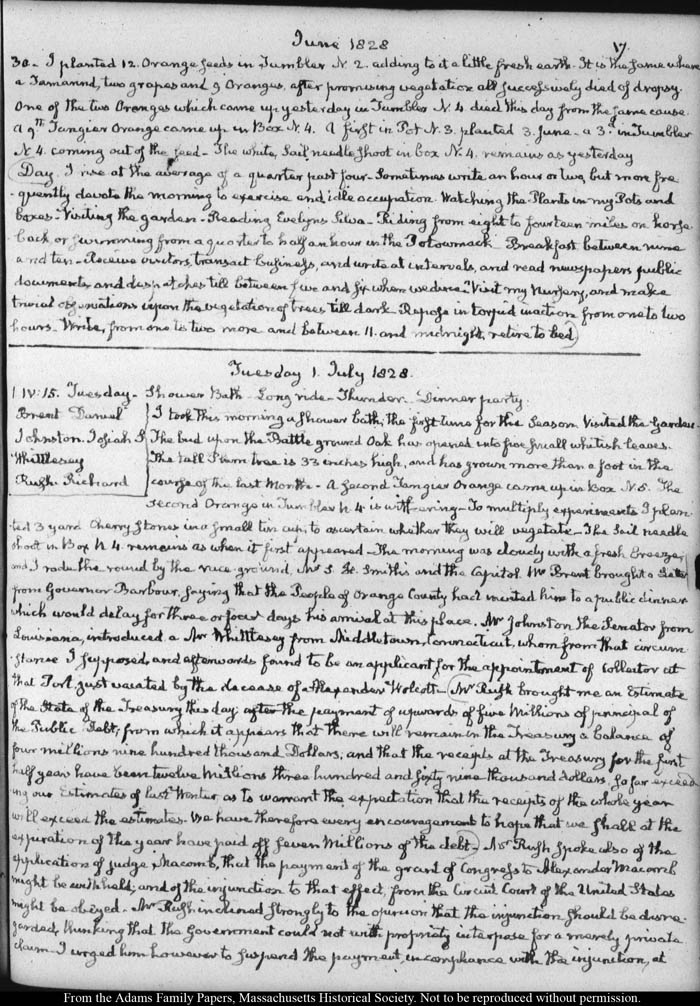 June 1828
17
30 - I planted 12. Orange seeds in Tumbler N. 2. adding to it a little fresh earth. It is the same where
a Tamarind, two grapes and 9 Oranges, after promising vegetation all successively died of dropsy.
One of the two Oranges which came up yesterday in Tumbler N. 4 died this day from the same cause.
A 9th Tangier Orange came up in Box N. 4. A first in Pot N. 3. planted 3. June - a 3d in Tumbler
N. 4. coming out of the seed - The white, sail needle shoot in box N. 4. remains as yesterday
(Day. I rise at the average of a quarter past four - Sometimes write an hour or two, but more fre
-quently devote the morning to exercise and idle occupation. Watching the Plants in my Pots and
boxes - Visiting the garden - Reading Evelyns Silva - Riding from eight to fourteen miles on horse
back, or swimming from a quarter to half an hour in the Potowmack. Breakfast between nine
and ten - Receive visitors, transact business, and write at intervals, and read newspapers public
documents and dispatches till between five and six when we dine - Visit my Nursery, and make
trivial observations upon the vegetation of trees till dark. Repose in torpid inaction from one to two
hours. Write, from one to two more and between 11. and midnight, retire to bed)
Tuesday 1. July 1828.
1 IV:15. Tuesday - Shower Bath - Long ride - Thunder. Dinner party.
Brent Daniel
Johnston. Josiah S
Whittlesey
Rush. Richard
I took this morning a shower bath, the first time for the Season. Visited the Garden.
The bud upon the Battle ground Oak has opened into five small whitish leaves.
The tall Plum tree is 33 inches high, and has grown more than a foot in the
course of the last Month - A second Tangier Orange came up in Box N. 5. The
second Orange in Tumbler N. 4 is withering - To multiply experiments I plan
ted 3 yard Cherry stones in a small tin cup, to ascertain whether they will vegetate - The sail needle
shoot in Box N. 4. remains as when it first appeared - The morning was cloudy with a fresh breeze,
and I rode the round by the race ground, Mr S. H. Smith's and the Capitol. Mr Brent brought a Letter
from Governor Barbour, saying that the People of Orange County had invited him to a public dinner
which would delay for three or four days his arrival at this place. Mr Johnston the Senator from
Louisiana, introduced a Mr Whittlesey from Middletown, Connecticut, whom from that circum
-stance I supposed, and afterwards found to be an applicant for the appointment of Collector at
that Port just vacated by the decease of Alexander Wolcott - (Mr Rush brought me an Estimate
of the State of the Treasury this day after the payment of upwards of five Millions of principal of
the Public Debt; from which it appears that there will remain in the Treasury a balance of
four millions nine hundred thousand Dollars; and that the receipts at the Treasury for the first
half year have been twelve Millions three hundred and sixty nine thousand dollars, so far exceed
ing our Estimates of last Winter, as to warrant the expectation that the receipts of the whole year
will exceed the estimates. We have therefore every encouragement to hope that we shall at the
expiration of the year have paid off seven Millions of the debt.) Mr Rush spoke also of the
application of judge Macomb, that the payment of the grant of Congress to Alexander Macomb
might be withheld; and of the injunction to that effect, from the Circuit Court of the United States
might be obeyed - Mr Rush inclined strongly to the opinion that the injunction should be disre
garded, thinking that the Government could not with propriety interpose for a merely private
claim - I urged him however to suspend the payment, in compliance with the injunction, at
From the Adams Family Papers, Massachusetts Historical Society. Not to be reproduced without permission.